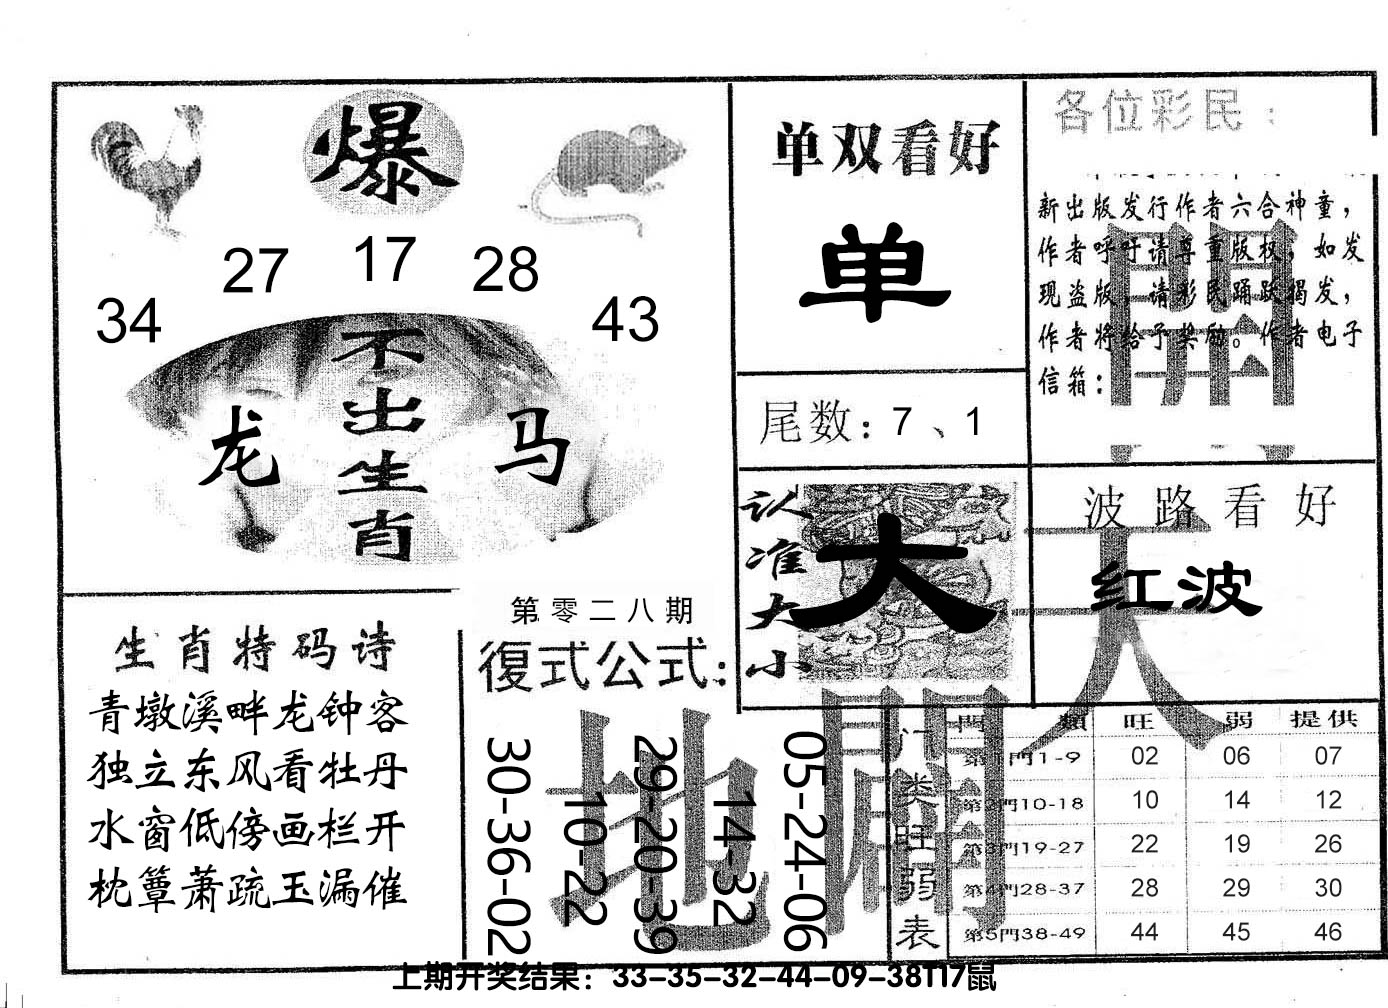 爆
27 17 28
34 43
不出生肖
龙 马
单双看好
单
尾数：7、1
各位彩民：
新出版发行作者六合神童，
作者呼吁请尊重版权，如发
现盗版，请彩民踊跃揭发，
作者将给予奖励。作者电子
信箱：
認准大小
大
波路看好
红波
天
開
地
闢
生肖特码诗
青墩溪畔龙钟客
独立东风看牡丹
水窗低傍画栏开
枕簟萧疏玉漏催
第零二八期
復式公式：
30-36-02
10-22
29-20-39
14-32
05-24-06
门类旺弱表
門類 旺 弱 提供
第1門1-9 02 06 07
第2門10-18 10 14 12
第3門19-27 22 19 26
第4門28-37 28 29 30
第5門38-49 44 45 46
上期开奖结果：33-35-32-44-09-38T17鼠